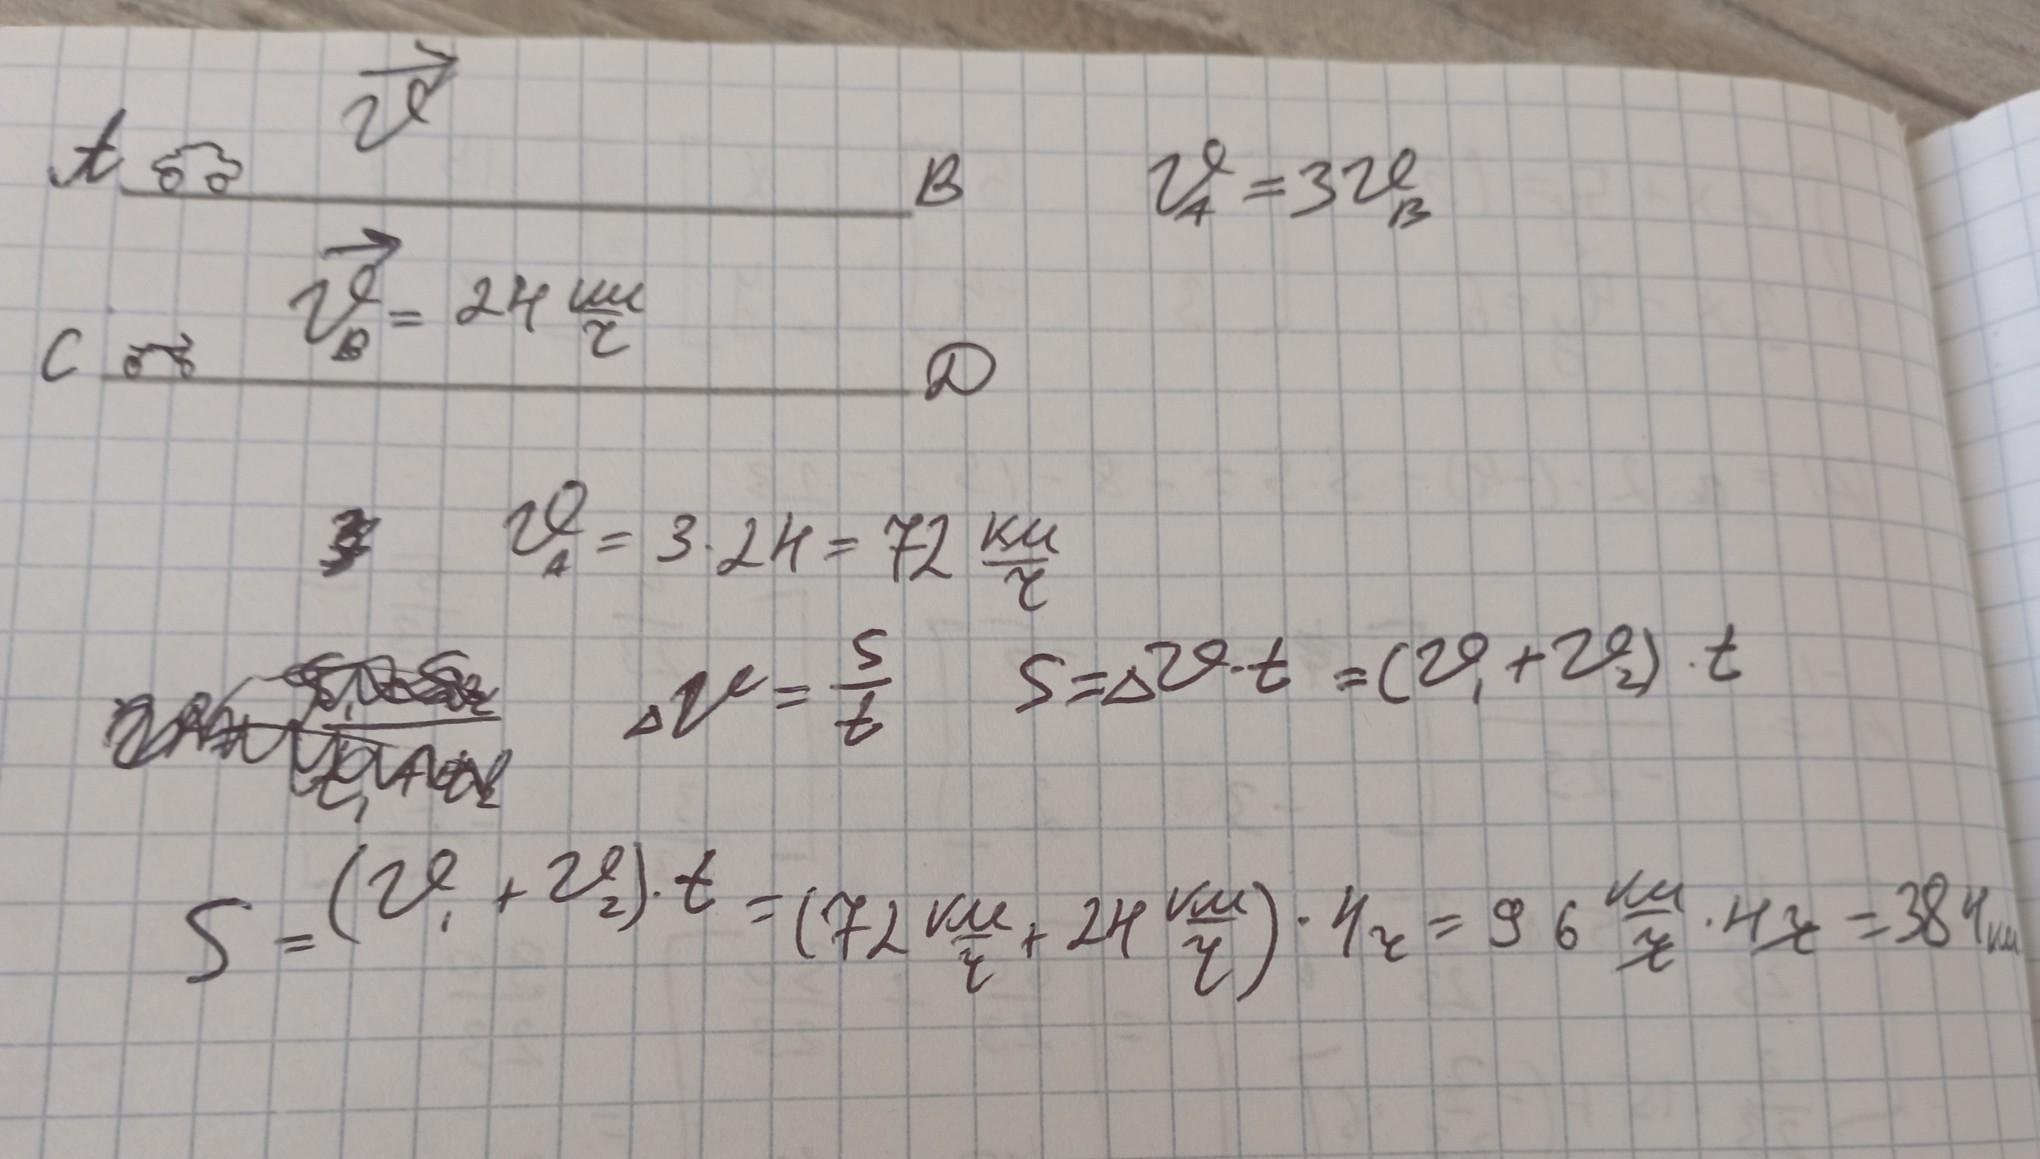 A v⃗ B v_A = 3v_B
v⃗_B = 24 км/ч
C D
v_A = 3·24 = 72 км/ч
Δv = s/t S = Δv·t = (v₁ + v₂)·t
S = (v₁ + v₂)·t = (72 км/ч + 24 км/ч)·4ч = 96 км/ч·4ч = 384км